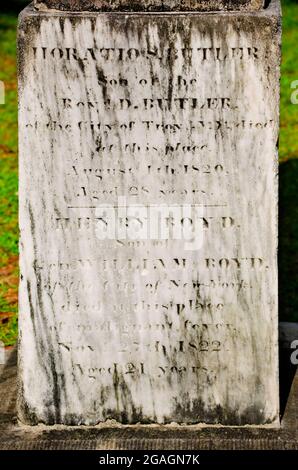 HORATIO BUTLER
Son of the
Rev. D. BUTLER,
of the City of Troy N.Y. died
at this place
August 4th 1820.
Aged 28 years.
HENRY BOYD.
Son of
WILLIAM BOYD,
of the City of New-York,
died at this place
of malignant fever,
Nov. 25th 1822.
Aged 21 years.
alamy
Image ID: 2GAGN7K
www.alamy.com